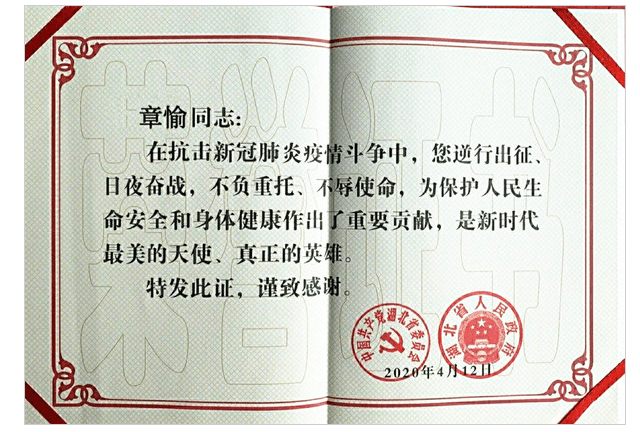 章愉同志：
在抗击新冠肺炎疫情斗争中，您逆行出征、
日夜奋战，不负重托、不辱使命，为保护人民生
命安全和身体健康作出了重要贡献，是新时代
最美的天使、真正的英雄。
特发此证，谨致感谢。
中国共产党湖北省委员会
湖北省人民政府
2020年4月12日
荣誉证书